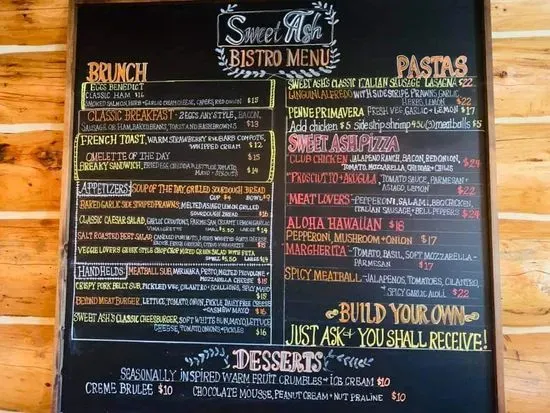 Sweet Ash
BISTRO MENU
BRUNCH
EGGS BENEDICT
CLASSIC HAM $16
SMOKED SALMON, HERB + GARLIC CREAM CHEESE, CAPERS, RED ONION $15
CLASSIC BREAKFAST - 2 EGGS ANY STYLE, BACON,
SAUSAGE OR HAM, BAKED BEANS, TOAST AND HASHBROWNS $13
FRENCH TOAST, WARM STRAWBERRY RHUBARB COMPOTE,
WHIPPED CREAM $12
OMELETTE OF THE DAY $15
BREAKY SANDWICH, FRIED EGG, CHEDDAR, LETTUCE, TOMATO,
MAYO + $15
APPETIZERS: SOUP OF THE DAY, GRILLED SOURDOUGH BREAD
CUP $4 BOWL $7
BAKED GARLIC SIDE STRIPED PRAWNS, MELTED ASIAGO LEMON GRILLED
SOURDOUGH BREAD $15
CLASSIC CAESAR SALAD, GARLIC CROUTONS, PARMESAN, CREAMY LEMON GARLIC
VINAIGRETTE SMALL $.50 LARGE $14
SALT ROASTED BEET SALAD, CANDIED NUTS, HERB WHIPPED GOAT CHEESE,
VEGGIE LOVERS GREEK STYLE CHOP MIXED GREEN SALAD WITH FETA
SMALL $.50 LARGE $14
HANDHELDS: MEATBALL SUB, MARINARA, PESTO, MELTED PROVOLONE +
MOZZARELLA CHEESE $15
CRISPY PORK BELLY SUB, PICKLED VEG, CILANTRO + SCALLIONS, SPICY MAYO
$15
BEYOND MEAT BURGER, LETTUCE, TOMATO, ONION, PICKLE, DAIRY FREE CHEESE
+ CASHEW MAYO $16
SWEET ASH'S CLASSIC CHEESEBURGER, SOFT WHITE BUN, MAYO, LETTUCE
CHEESE, TOMATO, ONIONS + PICKLES $16
PASTAS
SWEET ASH'S CLASSIC ITALIAN SAUSAGE LASAGNA $22
LINGUINI ALFREDO WITH SIDESTRIPE PRAWNS, GARLIC,
HERBS, LEMON $22
PENNE PRIMAVERA FRESH VEG, GARLIC + LEMON $17
Add chicken $5 side stripe shrimp 4.50 (3) meatballs $5
SWEET ASH PIZZA
CLUB CHICKEN JALAPENO RANCH, BACON, RED ONION,
TOMATO, MOZZARELLA, CHEDDAR + CHIVES $24
PROSCIUTTO + ARUGULA TOMATO SAUCE, PARMESAN +
ASIAGO, LEMON $22
MEAT LOVERS - PEPPERONI, SALAMI, BBQ CHICKEN,
ITALIAN SAUSAGE + BELL PEPPERS $24
ALOHA HAWAIIAN $18
PEPPERONI, MUSHROOM + ONION $17
MARGHERITA - TOMATO, BASIL, SOFT MOZZARELLA -
PARMESAN $17
SPICY MEATBALL - JALAPENOS, TOMATOES, CILANTRO,
+ SPICY GARLIC AIOLI $22
BUILD YOUR OWN -
JUST ASK + YOU SHALL RECEIVE!
DESSERTS
SEASONALLY INSPIRED WARM FRUIT CRUMBLES + ICE CREAM $10
CREME BRULEE $10 CHOCOLATE MOUSSE, PEANUT CREAM + NUT PRALINE $10